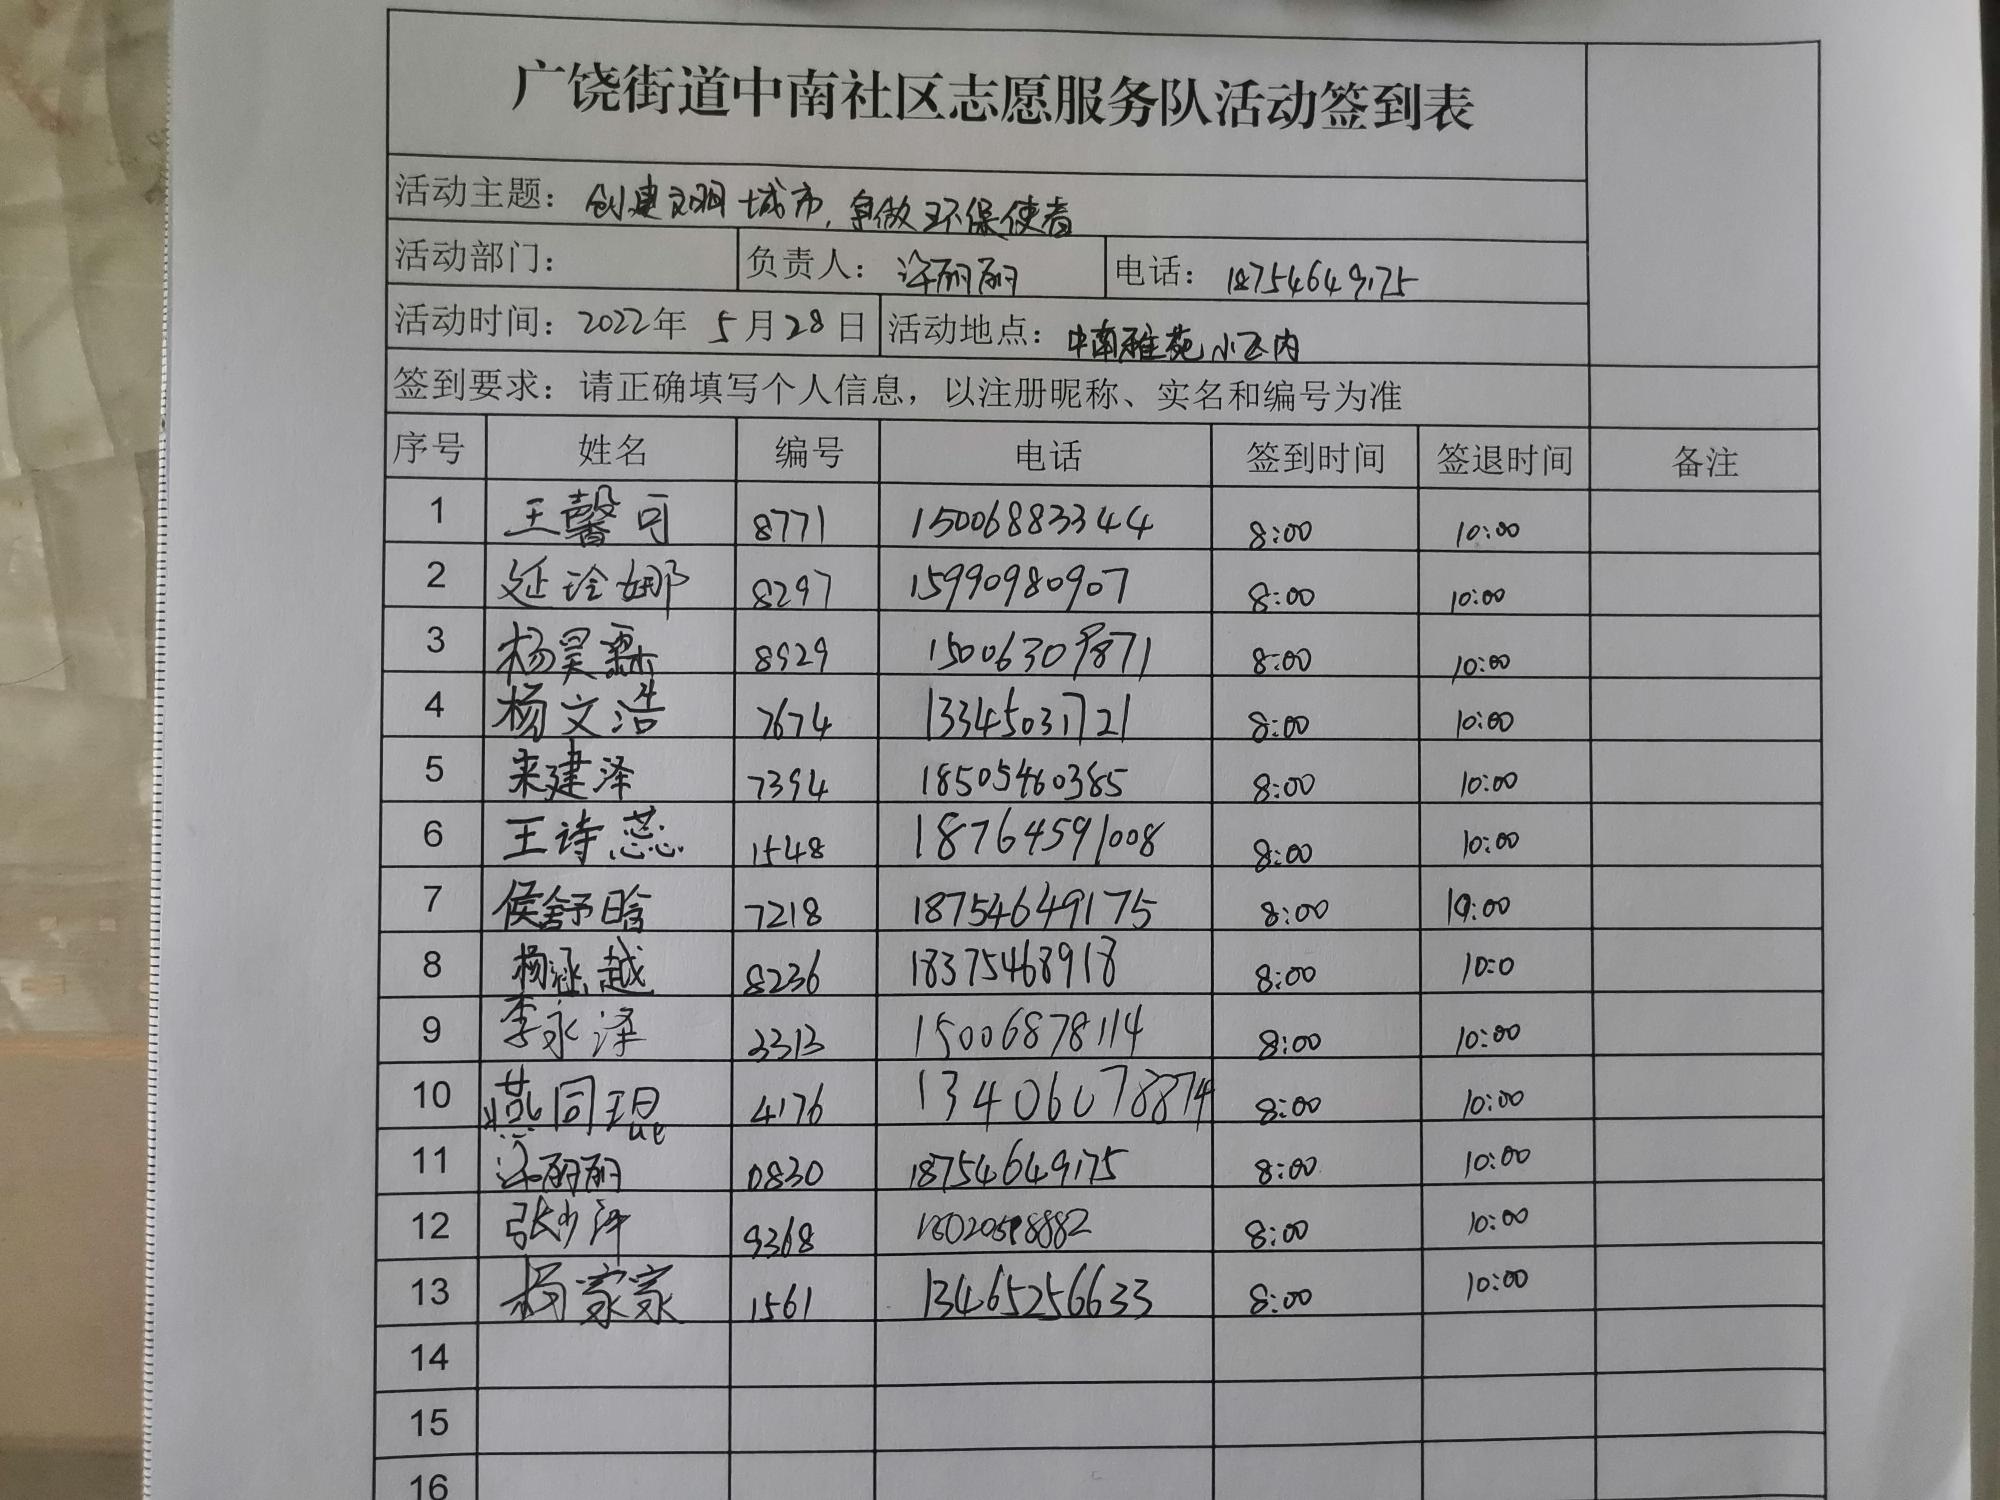 广饶街道中南社区志愿服务队活动签到表
活动主题：创建文明城市，争做环保使者
活动部门： 负责人：许丽丽 电话：18754649175
活动时间：2022年 5月28日 活动地点：中南雅苑小区内
签到要求：请正确填写个人信息，以注册昵称、实名和编号为准
序号 姓名 编号 电话 签到时间 签退时间 备注
1 王馨可 8771 15006883344 8:00 10:00
2 延玲娜 8297 15990980907 8:00 10:00
3 杨昊霖 8929 15006309871 8:00 10:00
4 杨文浩 7674 13345031721 8:00 10:00
5 来建泽 7394 18505460385 8:00 10:00
6 王诗蕊 1548 18764591008 8:00 10:00
7 侯舒晗 7218 18754649175 8:00 10:00
8 杨涵越 8236 18375468918 8:00 10:0
9 李永泽 3313 15006878114 8:00 10:00
10 燕同琨 4176 13406078874 8:00 10:00
11 许丽丽 0830 18754649175 8:00 10:00
12 9368 8:00 10:00
13 杨家家 1561 13465256633 8:00 10:00
14
15
16